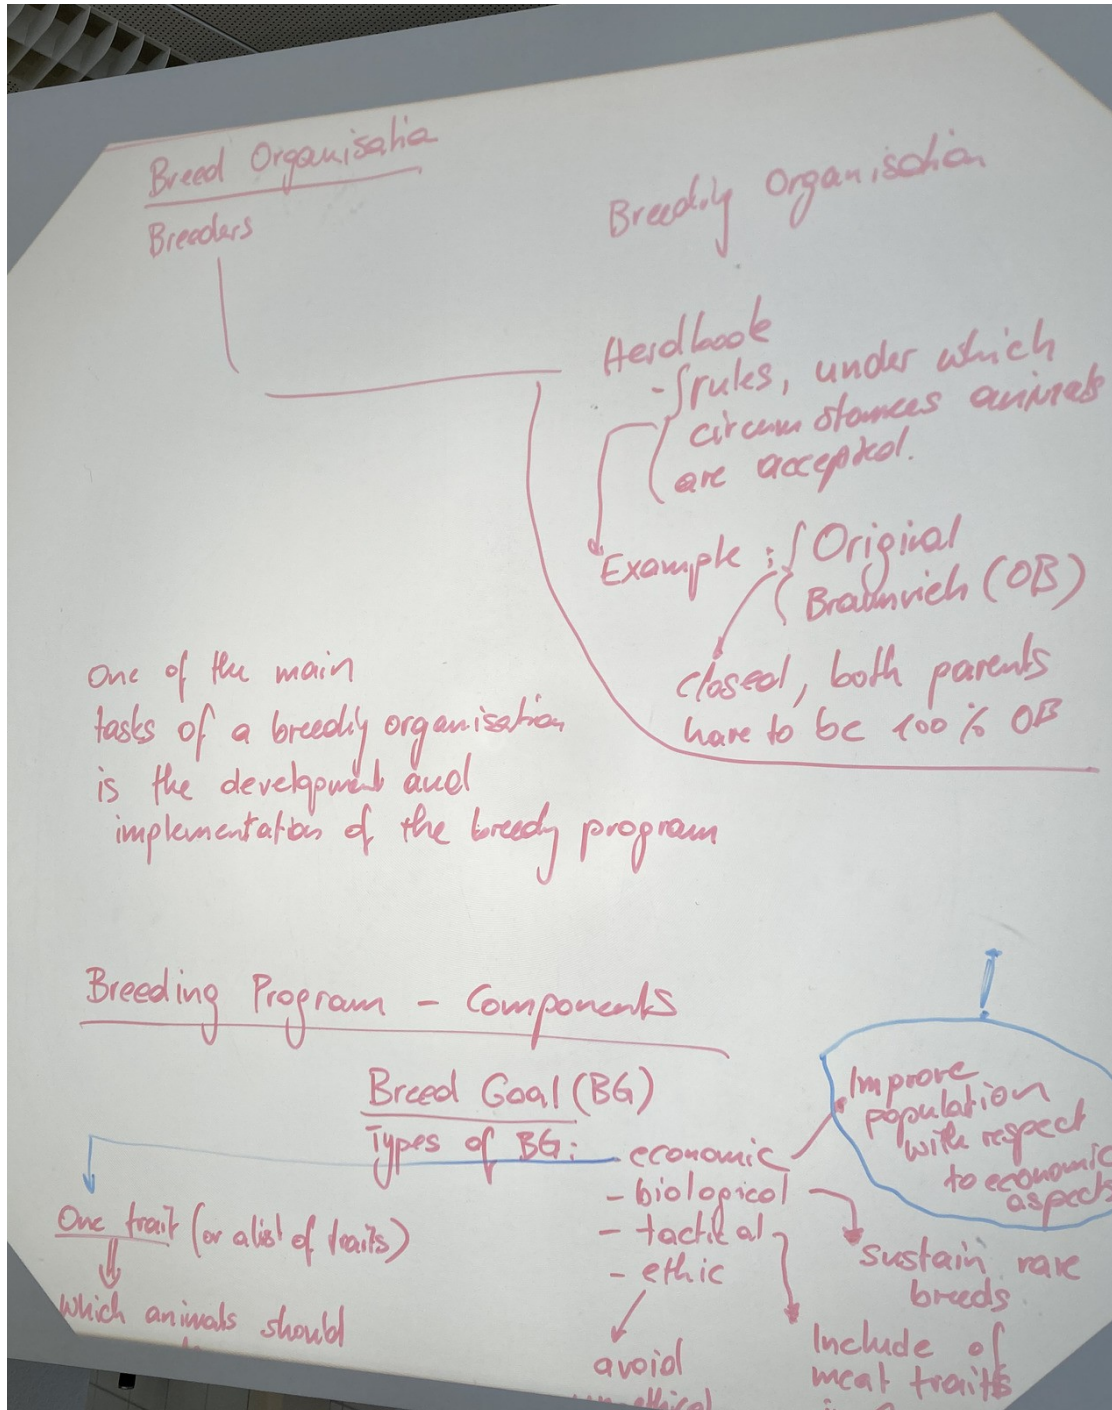 Breed Organisatio
Breeders
Breeding Organisation
Herdbook
- rules, under which
circumstances animals
are accepted.
Example : Original
Braunvieh (OB)
closed, both parents
have to be 100% OB
One of the main
tasks of a breeding organisation
is the development and
implementation of the breeding program
Breeding Program - Components
Breed Goal (BG)
Types of BG: - economic
- biological
- tactical
- ethic
!
Improve
population
with respect
to economic
aspects
One trait (or a list of traits)
Which animals should
sustain rare
breeds
avoid
Include of
meat traits